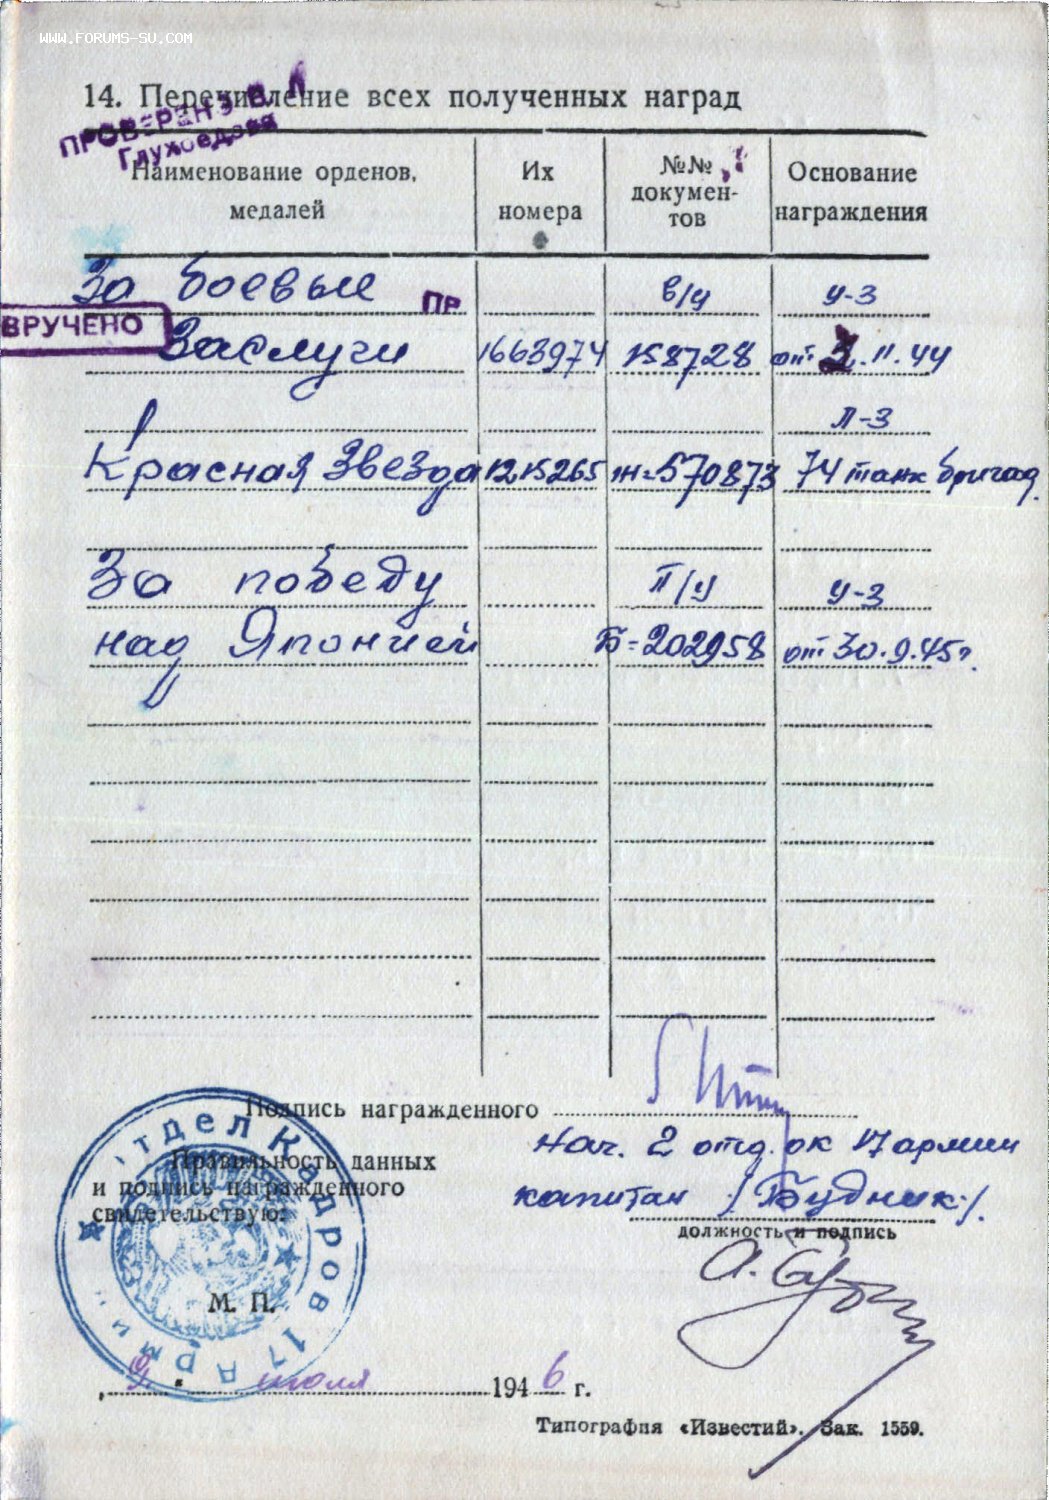 WWW.FORUMS-SU.COM
14. Перечисление всех полученных наград
ПРОВЕРЕНЭ В. П
Глухоедова
Наименование орденов, медалей
Их номера
№№ документов
Основание награждения
За боевые ПР в/у У-З
ВРУЧЕНО
Заслуги 1663974 158728 от 3.11.44
П-З
Красная Звезда 1215265 570873 74 танк бригад.
За победу П/У У-З
над Японией Б=202958 от 30.9.45г.
Подпись награжденного
нач. 2 отд. ок 17 армии
Правильность данных
и подпись награжденного
свидетельствую:
капитан /Будник/.
должность и подпись
Отдел Кадров 17 Армии
М. П.
9 июля 1946 г.
Типография «Известий». Зак. 1559.